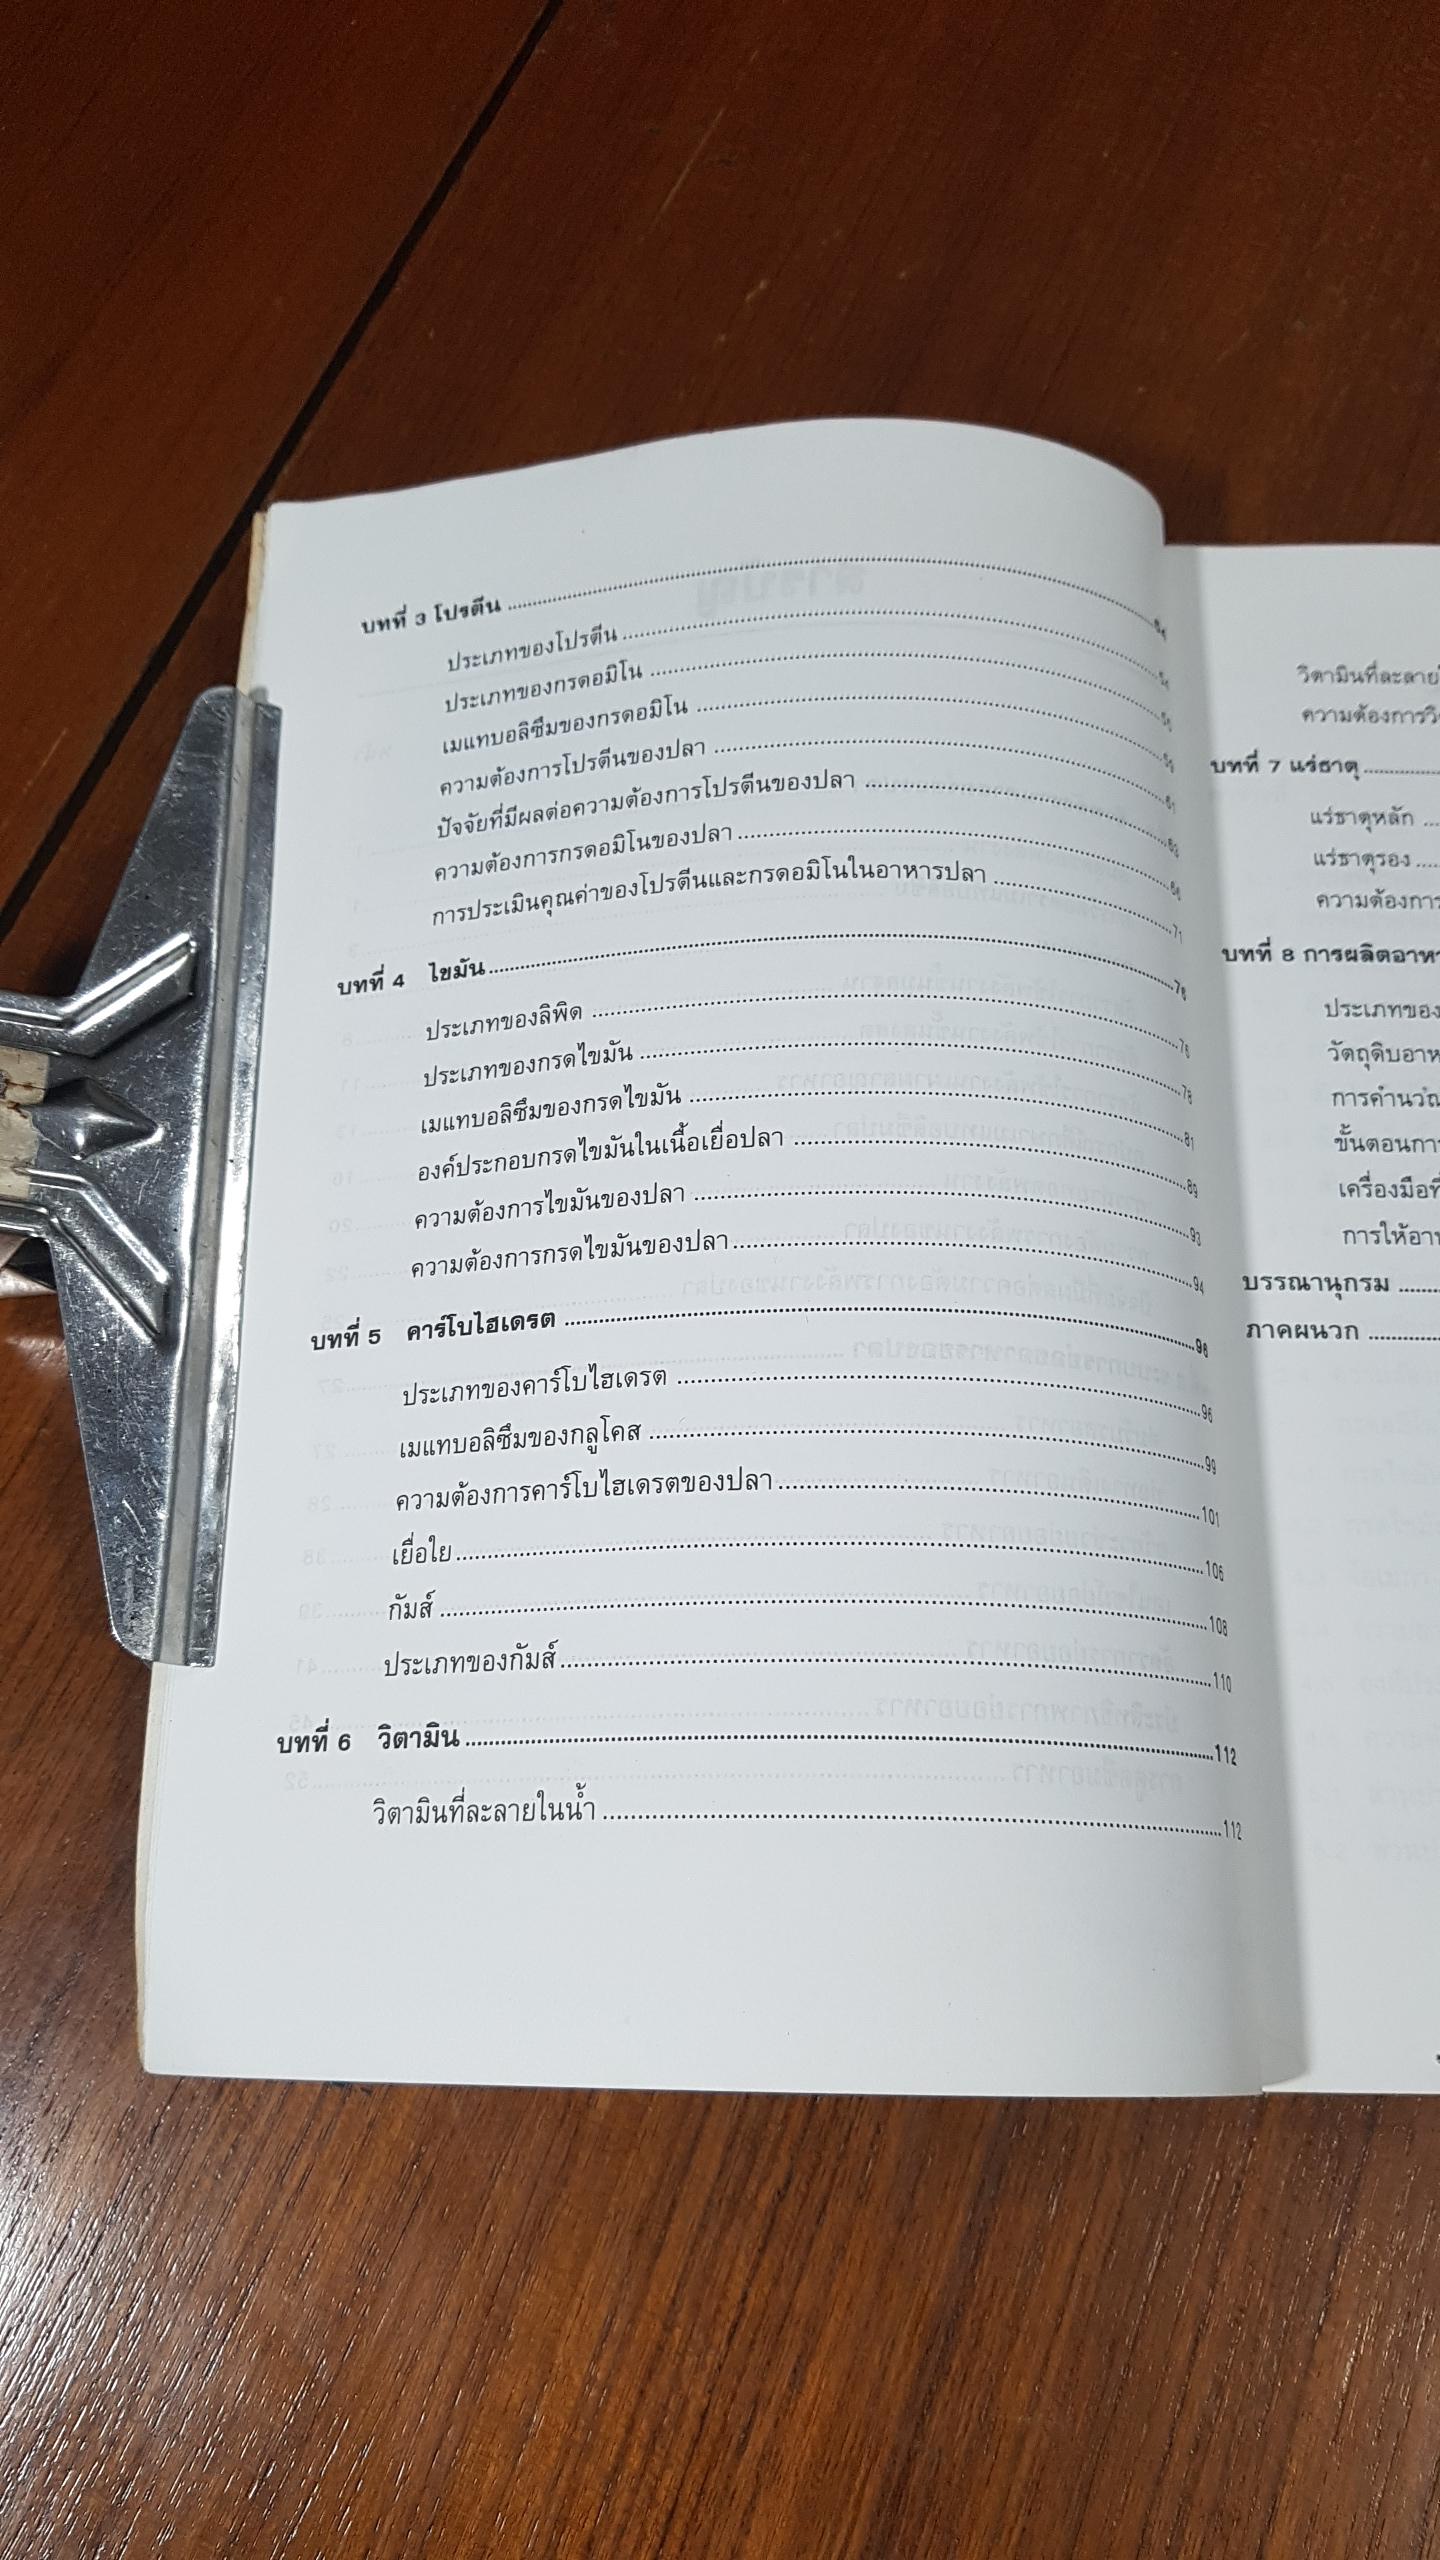 บทที่ 3 โปรตีน ........ 54
ประเภทของโปรตีน ........ 54
ประเภทของกรดอมิโน ........ 55
เมแทบอลิซึมของกรดอมิโน ........ 59
ความต้องการโปรตีนของปลา ........ 61
ปัจจัยที่มีผลต่อความต้องการโปรตีนของปลา ........ 63
ความต้องการกรดอมิโนของปลา ........ 66
การประเมินคุณค่าของโปรตีนและกรดอมิโนในอาหารปลา ........ 71
บทที่ 4 ไขมัน ........ 76
ประเภทของลิพิด ........ 76
ประเภทของกรดไขมัน ........ 78
เมแทบอลิซึมของกรดไขมัน ........ 81
องค์ประกอบกรดไขมันในเนื้อเยื่อปลา ........ 89
ความต้องการไขมันของปลา ........ 93
ความต้องการกรดไขมันของปลา ........ 94
บทที่ 5 คาร์โบไฮเดรต ........ 96
ประเภทของคาร์โบไฮเดรต ........ 96
เมแทบอลิซึมของกลูโคส ........ 99
ความต้องการคาร์โบไฮเดรตของปลา ........ 101
เยื่อใย ........ 106
กัมส์ ........ 108
ประเภทของกัมส์ ........ 110
บทที่ 6 วิตามิน ........ 112
วิตามินที่ละลายในน้ำ ........ 112
วิตามินที่ละลาย
ความต้องการ
บทที่ 7 แร่ธาตุ ........
แร่ธาตุหลัก ...
แร่ธาตุรอง ....
ความต้องการ
บทที่ 8 การผลิตอาหา
ประเภทของ
วัตถุดิบอาห
การคำนวณ
ขั้นตอนกา
เครื่องมือที่
การให้อา
บรรณานุกรม ........
ภาคผนวก ........